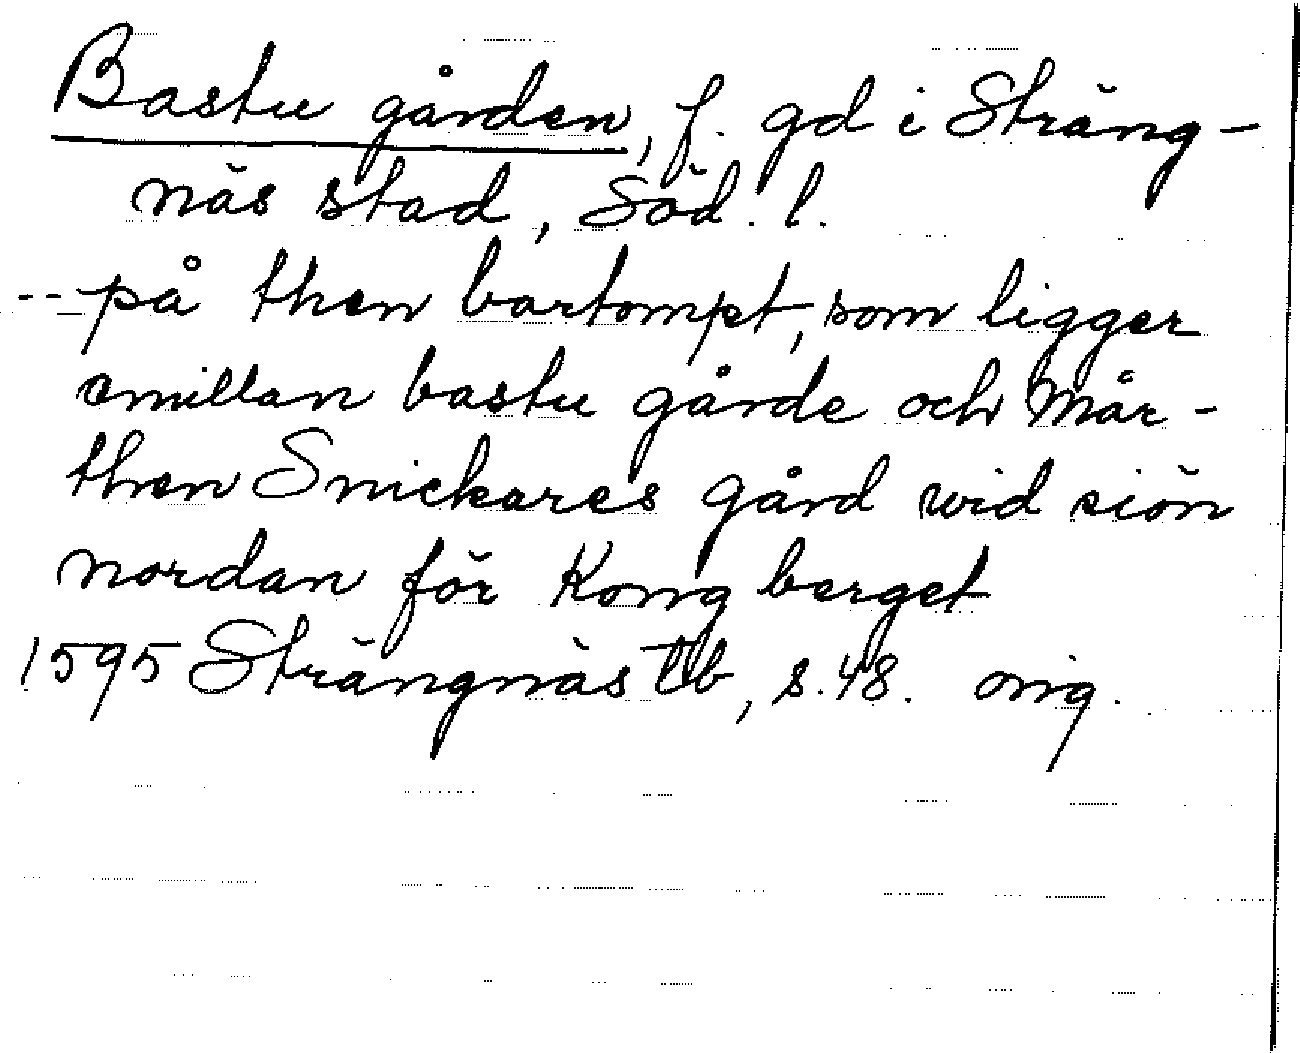 Bastu gården, f. gd i Sträng-
näs stad, Söd. l.
--- på then bartompt, som ligger
emillan bastu gårde och Mår-
then Snickares gård wid siön
nordan för Kong berget
1595 Strängnäs tb, s. 48. orig.